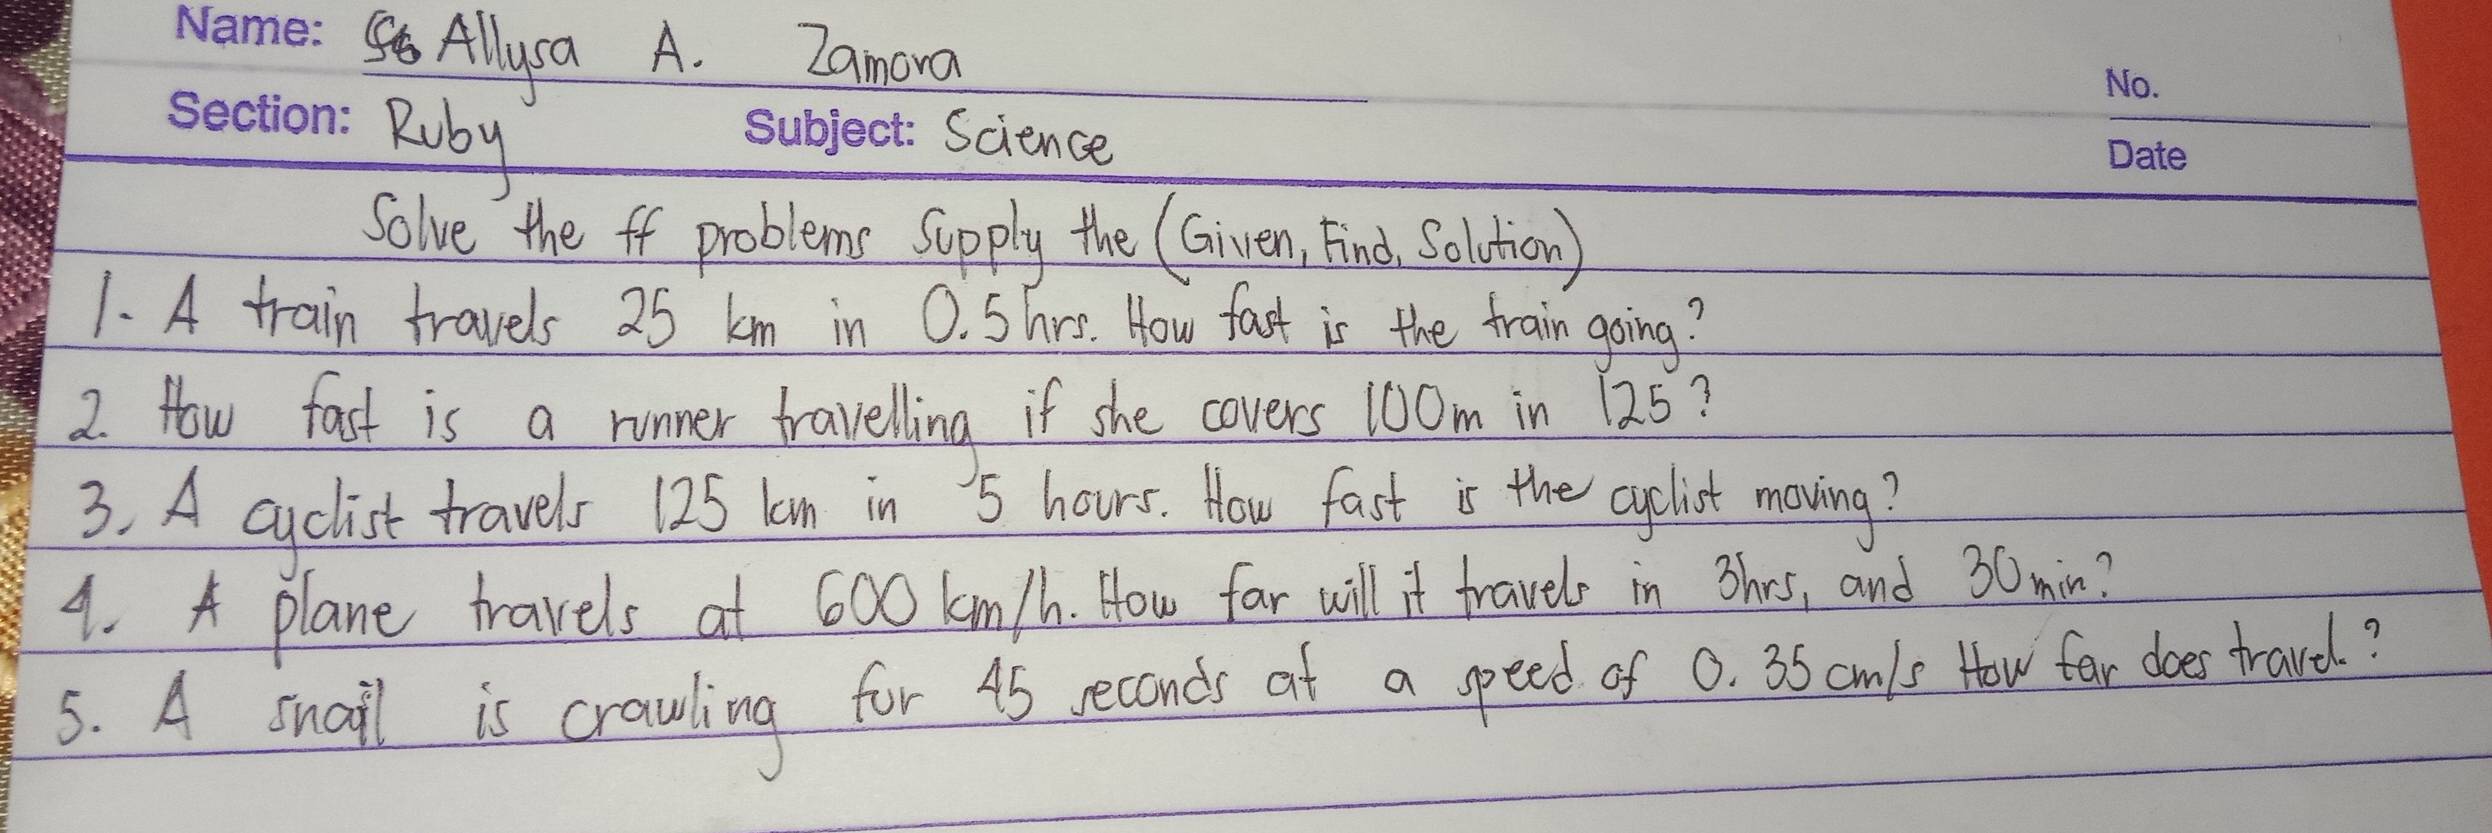 Name: Allysa A. Zamora
No.
Section: Ruby Subject: Science
Date
Solve the ff problems Supply the (Given, Find, Solution)
1. A train travels 25 km in 0.5 hrs. How fast is the train going?
2. How fast is a runner travelling if she covers 100m in 125?
3. A cyclist travels 125 km in 5 hours. How fast is the cyclist moving?
4. A plane travels at 600 km/h. How far will it travels in 3hrs, and 30 min?
5. A snail is crawling for 45 seconds at a speed of 0.35 cm/s How far does travel.?